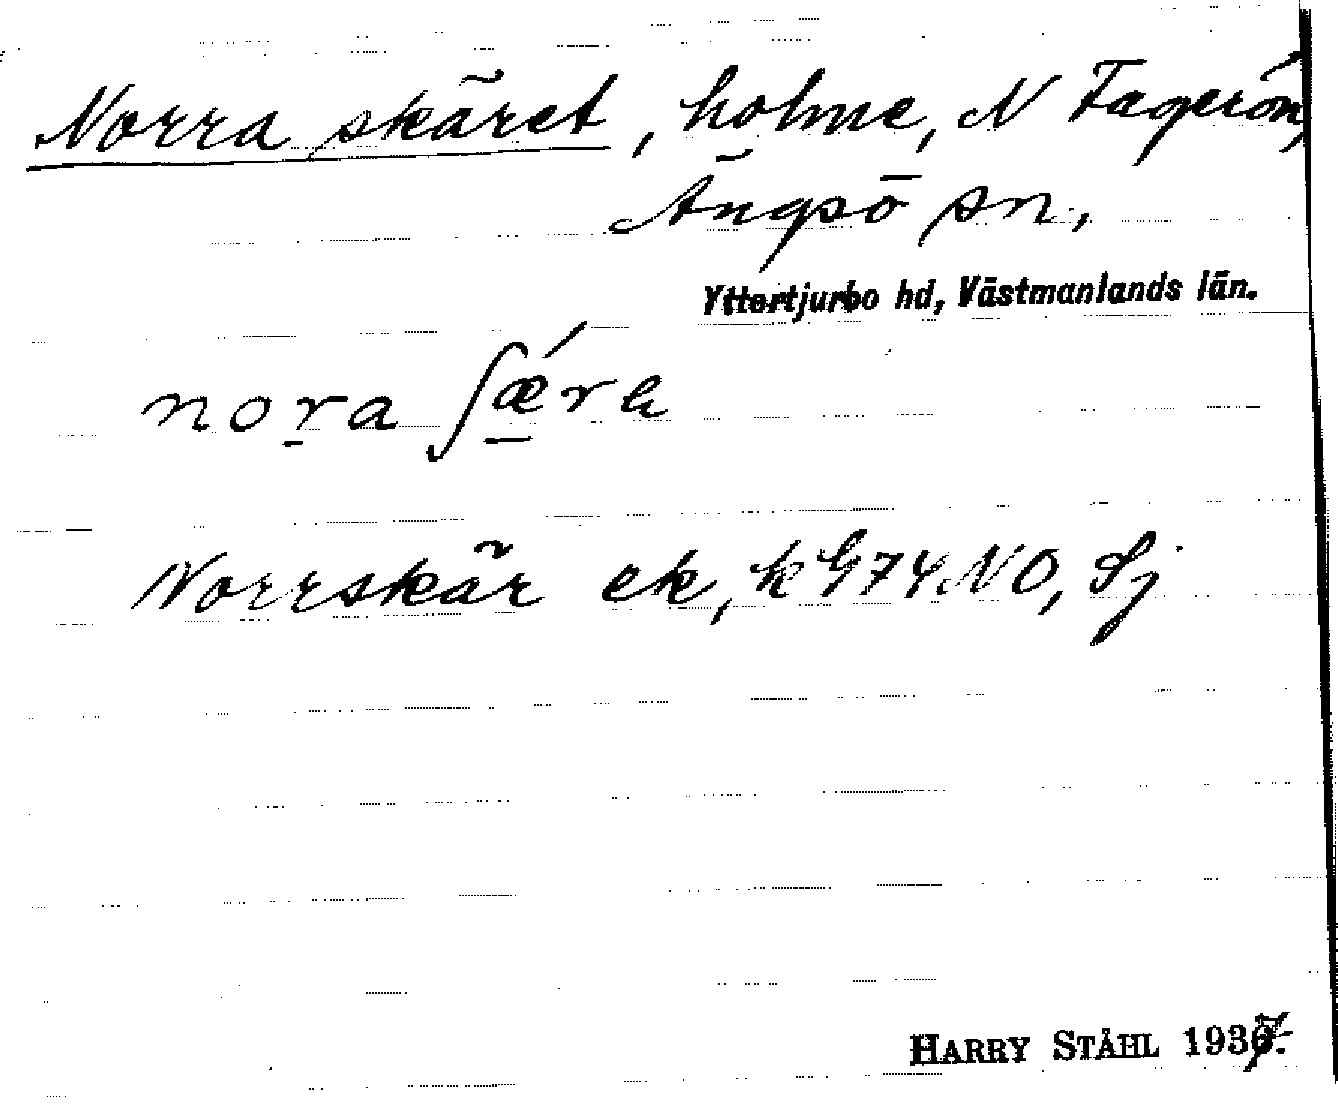 Norra skäret, holme, N Fagerön,
Ängsö sn,
Yttertjurbo hd, Västmanlands län.
nora ʃǽra
Norrskär ek, k G74NO, Sj
HARRY STÅHL 1937.